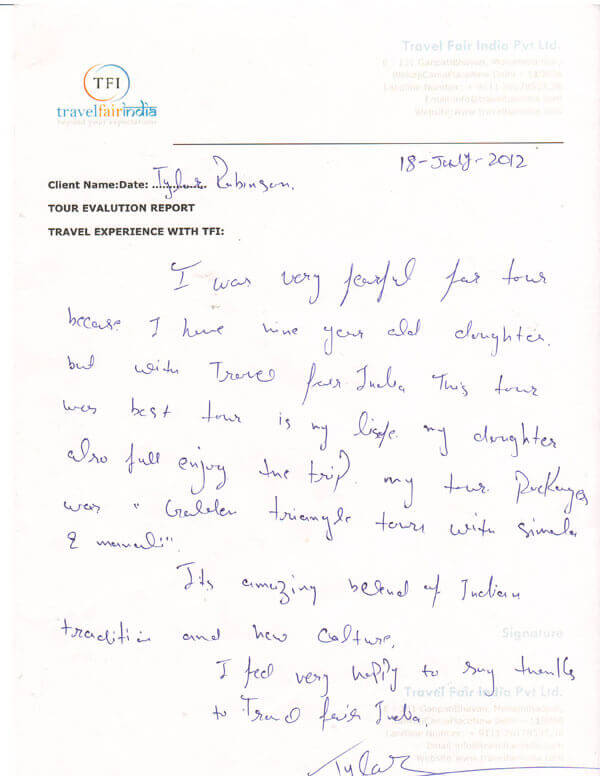 Travel Fair India Pvt Ltd.
TFI
travelfairindia
beyond your expectations
18-July-2012
Client Name:Date: Tylar Rubinson.
TOUR EVALUTION REPORT
TRAVEL EXPERIENCE WITH TFI:
I was very fearful for tour
because I have nine year old doughter.
but with Travel fair India This tour
was best tour is my life. my doughter
also full enjoy the trip. my tour Packages
was " Golden triangle tours with simala
& manali".
Its amazing belend of Indian
tradition and new Calture.
Signature
I feel very happy to say thanks
Travel Fair India Pvt Ltd.
to Travel fair India.
Tylar